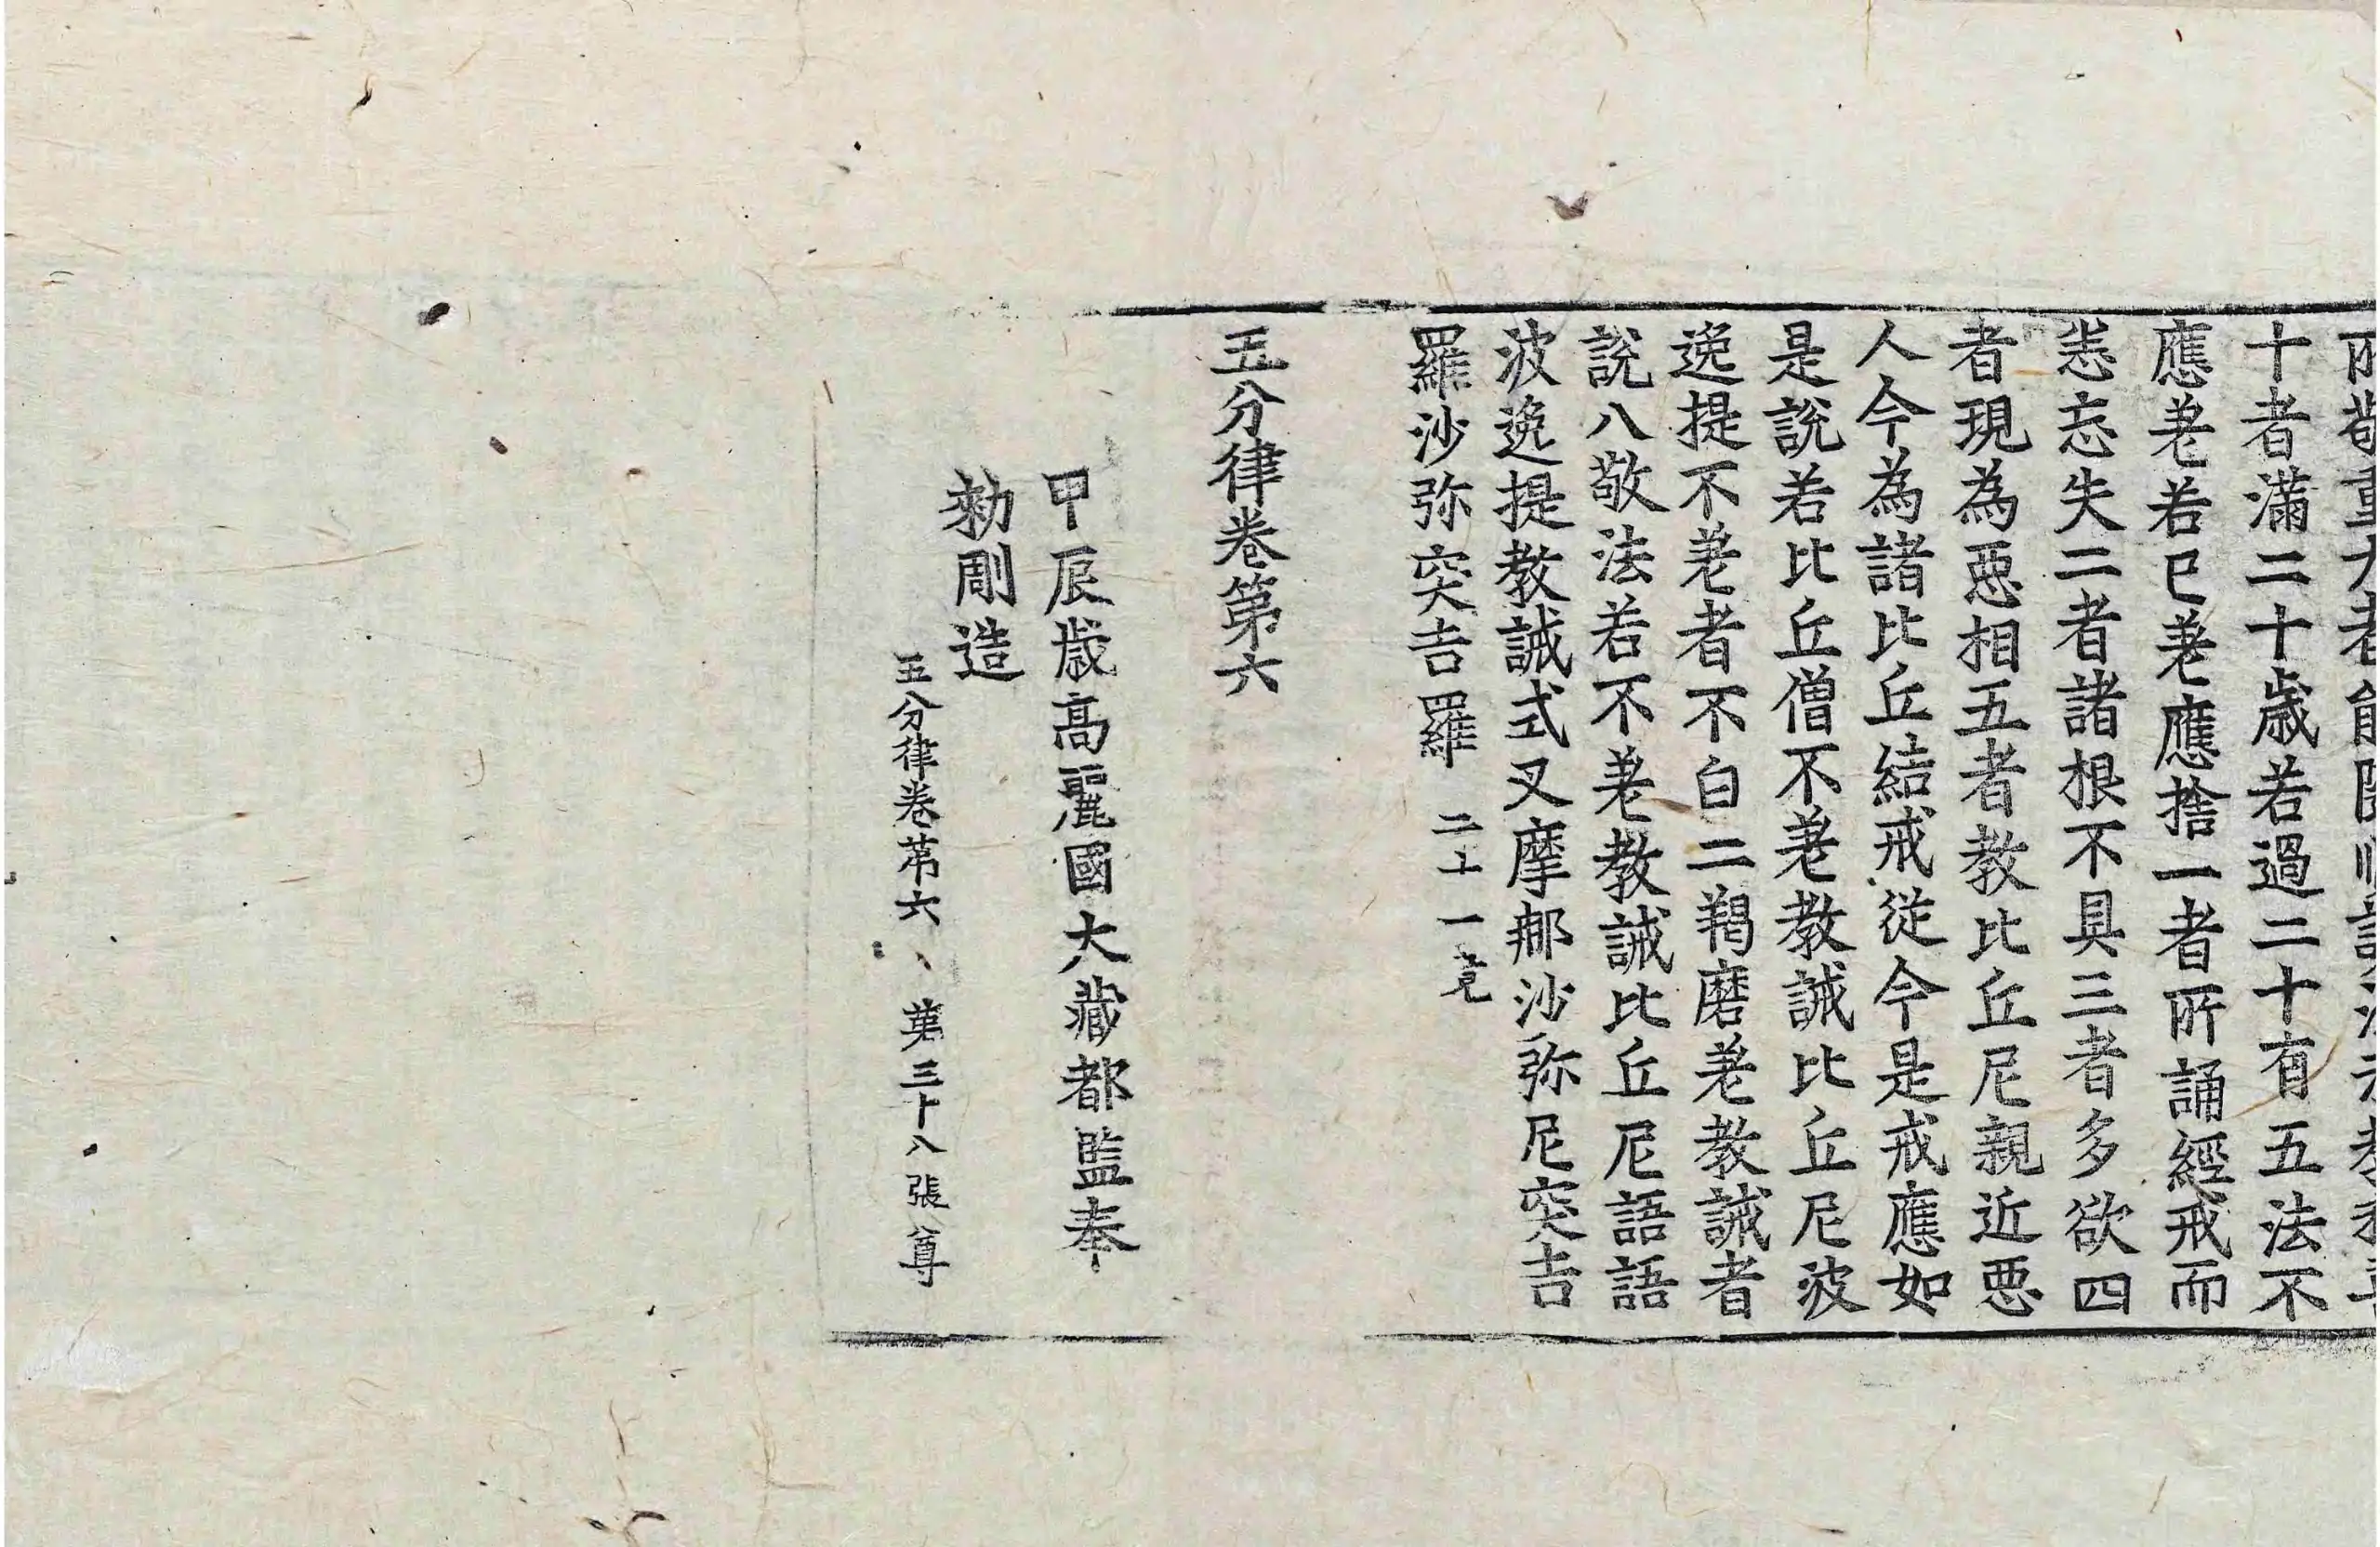 十者滿二十歲若過二十有五法不
應差若已差應捨一者所誦經戒而
恙忘失二者諸根不具三者多欲四
者現為惡相五者教比丘尼親近惡
人今為諸比丘結戒從今是戒應如
是說若比丘僧不差教誡比丘尼波
逸提不差者不白二羯磨差教誡者
說八敬法若不差教誡比丘尼語語
波逸提教誡式叉摩那沙弥尼突吉
羅沙弥突吉羅 二十一竟
五分律卷第六
甲辰歲高麗國大藏都監奉
勑彫造
五分律卷第六 第三十八張 尊